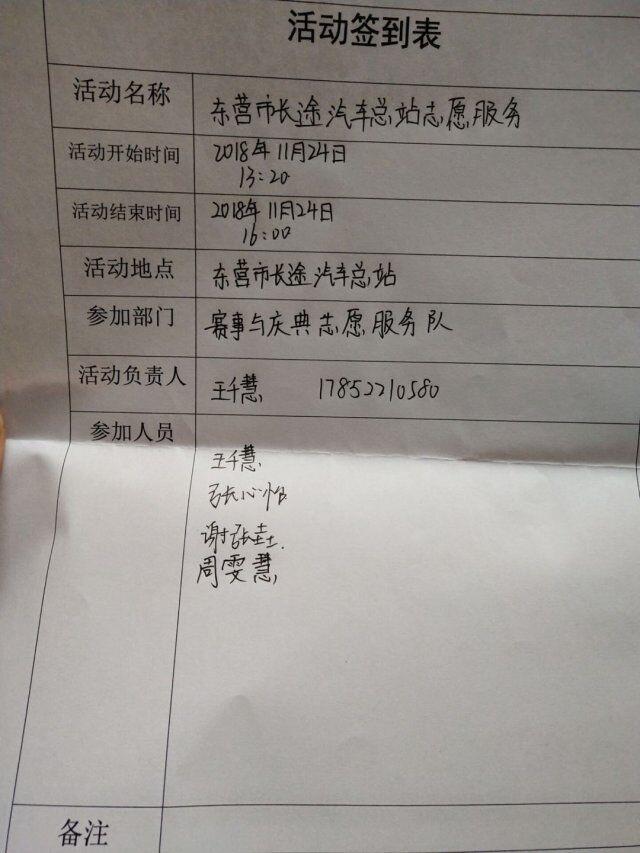 活动签到表
活动名称 东营市长途汽车总站志愿服务
活动开始时间 2018年11月24日
13:20
活动结束时间 2018年11月24日
16:00
活动地点 东营市长途汽车总站
参加部门 赛事与庆典志愿服务队
活动负责人 王千慧 17852210580
参加人员
王千慧
张心怡
谢
周雯慧
备注